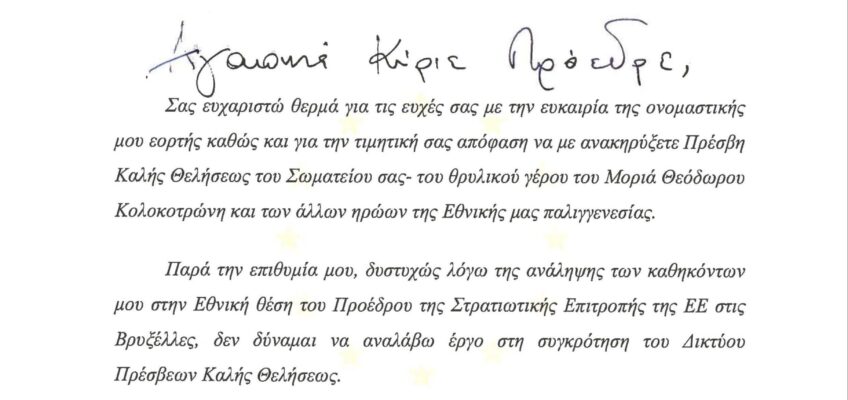 Αγαπητέ Κύριε Πρόεδρε,
Σας ευχαριστώ θερμά για τις ευχές σας με την ευκαιρία της ονομαστικής
μου εορτής καθώς και για την τιμητική σας απόφαση να με ανακηρύξετε Πρέσβη
Καλής Θελήσεως του Σωματείου σας- του θρυλικού γέρου του Μοριά Θεόδωρου
Κολοκοτρώνη και των άλλων ηρώων της Εθνικής μας παλιγγενεσίας.
Παρά την επιθυμία μου, δυστυχώς λόγω της ανάληψης των καθηκόντων
μου στην Εθνική θέση του Προέδρου της Στρατιωτικής Επιτροπής της ΕΕ στις
Βρυξέλλες, δεν δύναμαι να αναλάβω έργο στη συγκρότηση του Δικτύου
Πρέσβεων Καλής Θελήσεως.